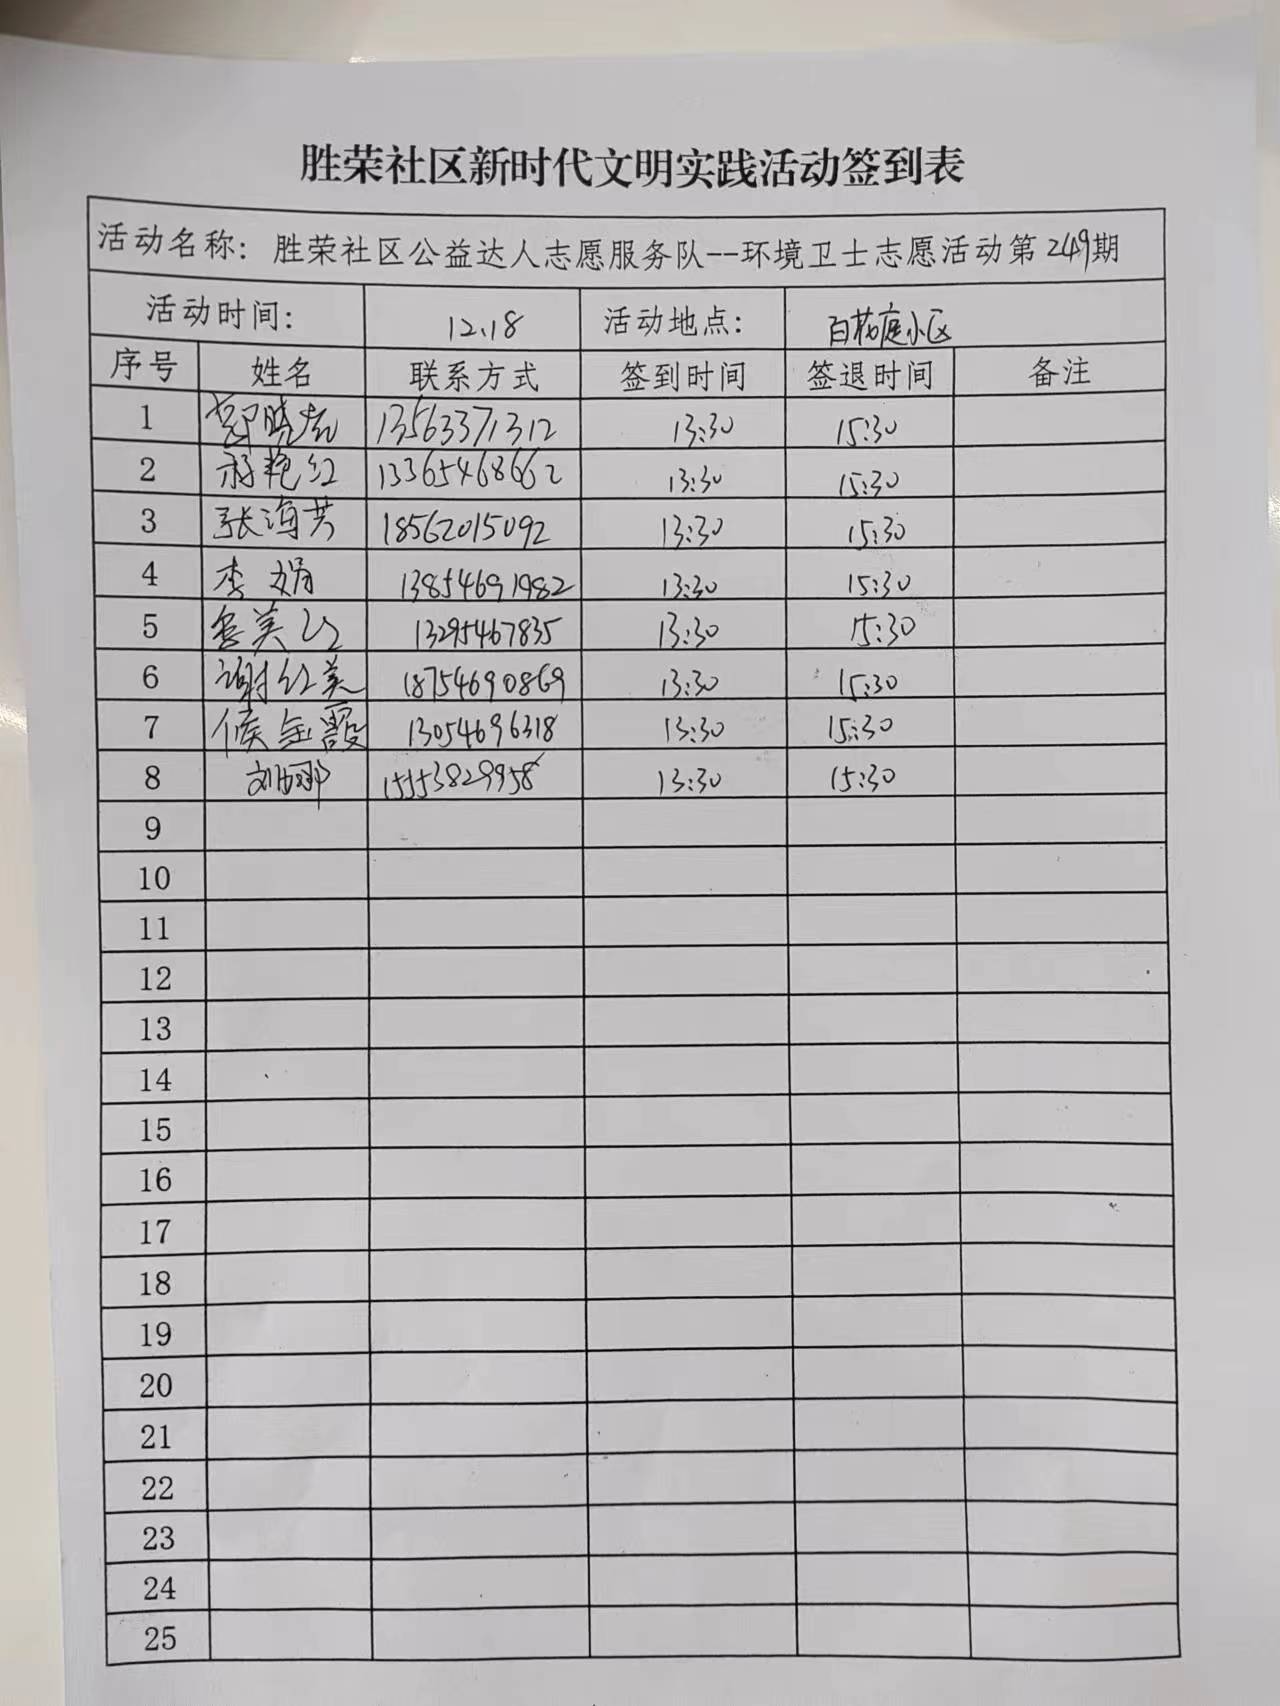 胜荣社区新时代文明实践活动签到表
活动名称：胜荣社区公益达人志愿服务队--环境卫士志愿活动第249期
活动时间： 12.18 活动地点： 百花庭小区
序号 姓名 联系方式 签到时间 签退时间 备注
1 13563371312 13:30 15:30
2 艳红 13365468662 13:30 15:30
3 张海芳 18562015092 13:30 15:30
4 李娟 13854691982 13:30 15:30
5 美红 13295467835 13:30 15:30
6 谢红美 18754690869 13:30 15:30
7 侯金霞 13054696318 13:30 15:30
8 刘娜 15553829958 13:30 15:30
9
10
11
12
13
14
15
16
17
18
19
20
21
22
23
24
25